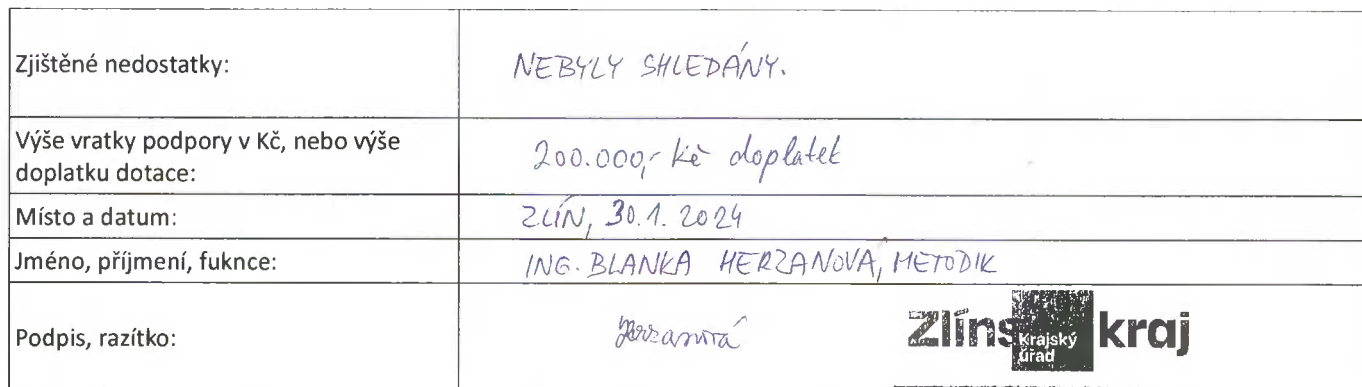 Zjištěné nedostatky: NEBYLY SHLEDÁNY.
Výše vratky podpory v Kč, nebo výše
doplatku dotace: 200.000,- Kč doplatek
Místo a datum: ZLÍN, 30.1.2024
Jméno, příjmení, fuknce: ING. BLANKA HERZANOVÁ, METODIK
Podpis, razítko: Herzanová
Zlínský kraj
Krajský
úřad